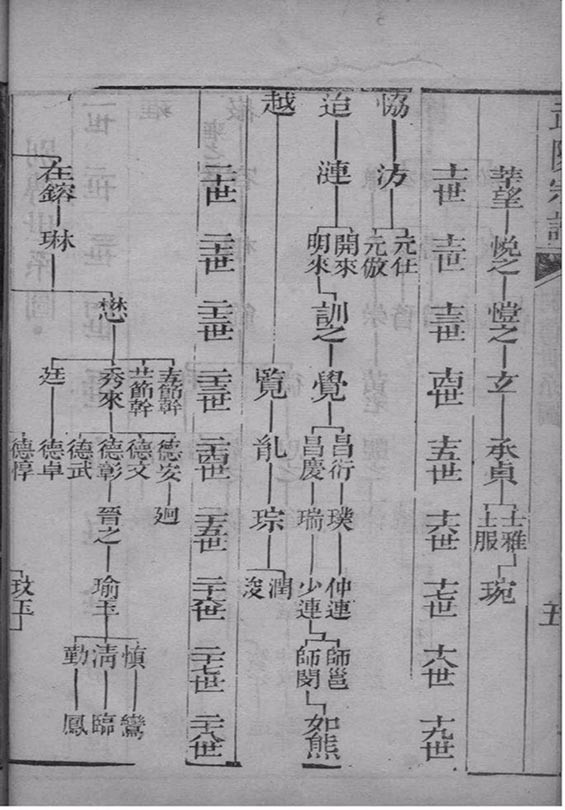 莘望 悅之 愷之 立 承貞 士雅 士服 琬
五
十一世 十二世 十三世 十四世 十五世 十六世 十七世 十八世 十九世
協 汸 元任 元倣
迨 漣 開來 明來 訓之 覺 昌衍 昌慶 璞 瑞 仲連 少連 師邕 師閔 如熊
越 覽 能 琮 潤 浚
二十世 二十一世 二十二世 二十三世 二十四世 二十五世 二十六世 二十七世 二十八世
在鎔 琳 懋 秀來 廷 德安 德文 德彰 德武 德卓 德惇 廻 晉之 瑜玉 玟玉 慎 淸 勤 鸞 臨 鳳